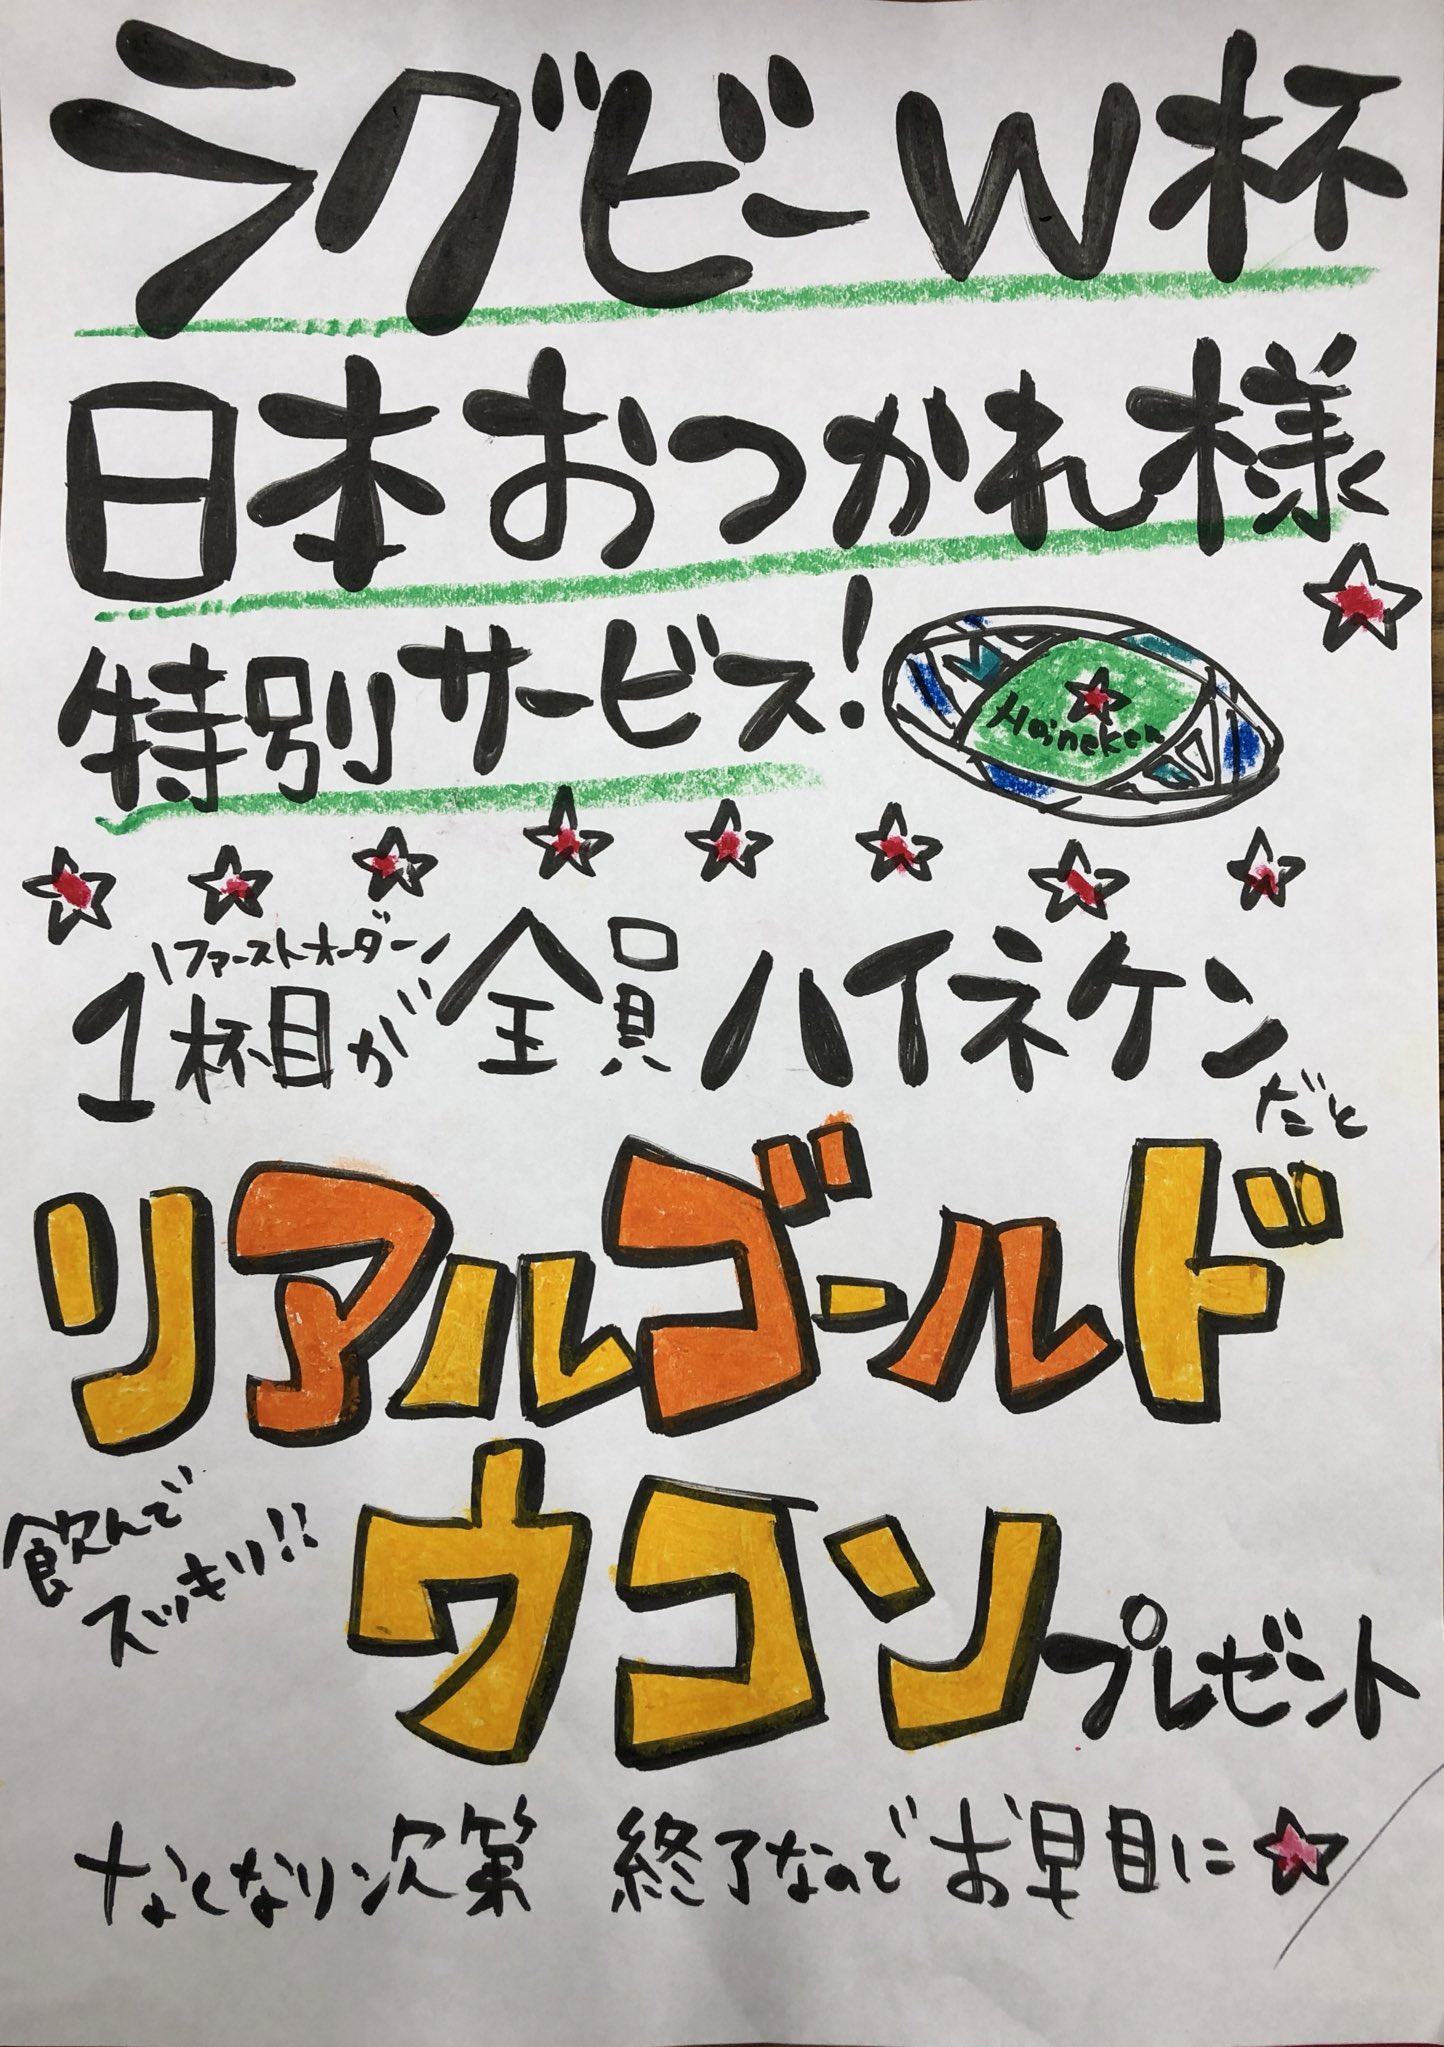 ラグビーW杯
日本おつかれ様
特別サービス!
Heineken
\ファーストオーダー/
1杯目が全員ハイネケンだと
リアルゴールド
飲んでスッキリ!!
ウコンプレゼント
なくなり次第 終了なのでお早目に☆